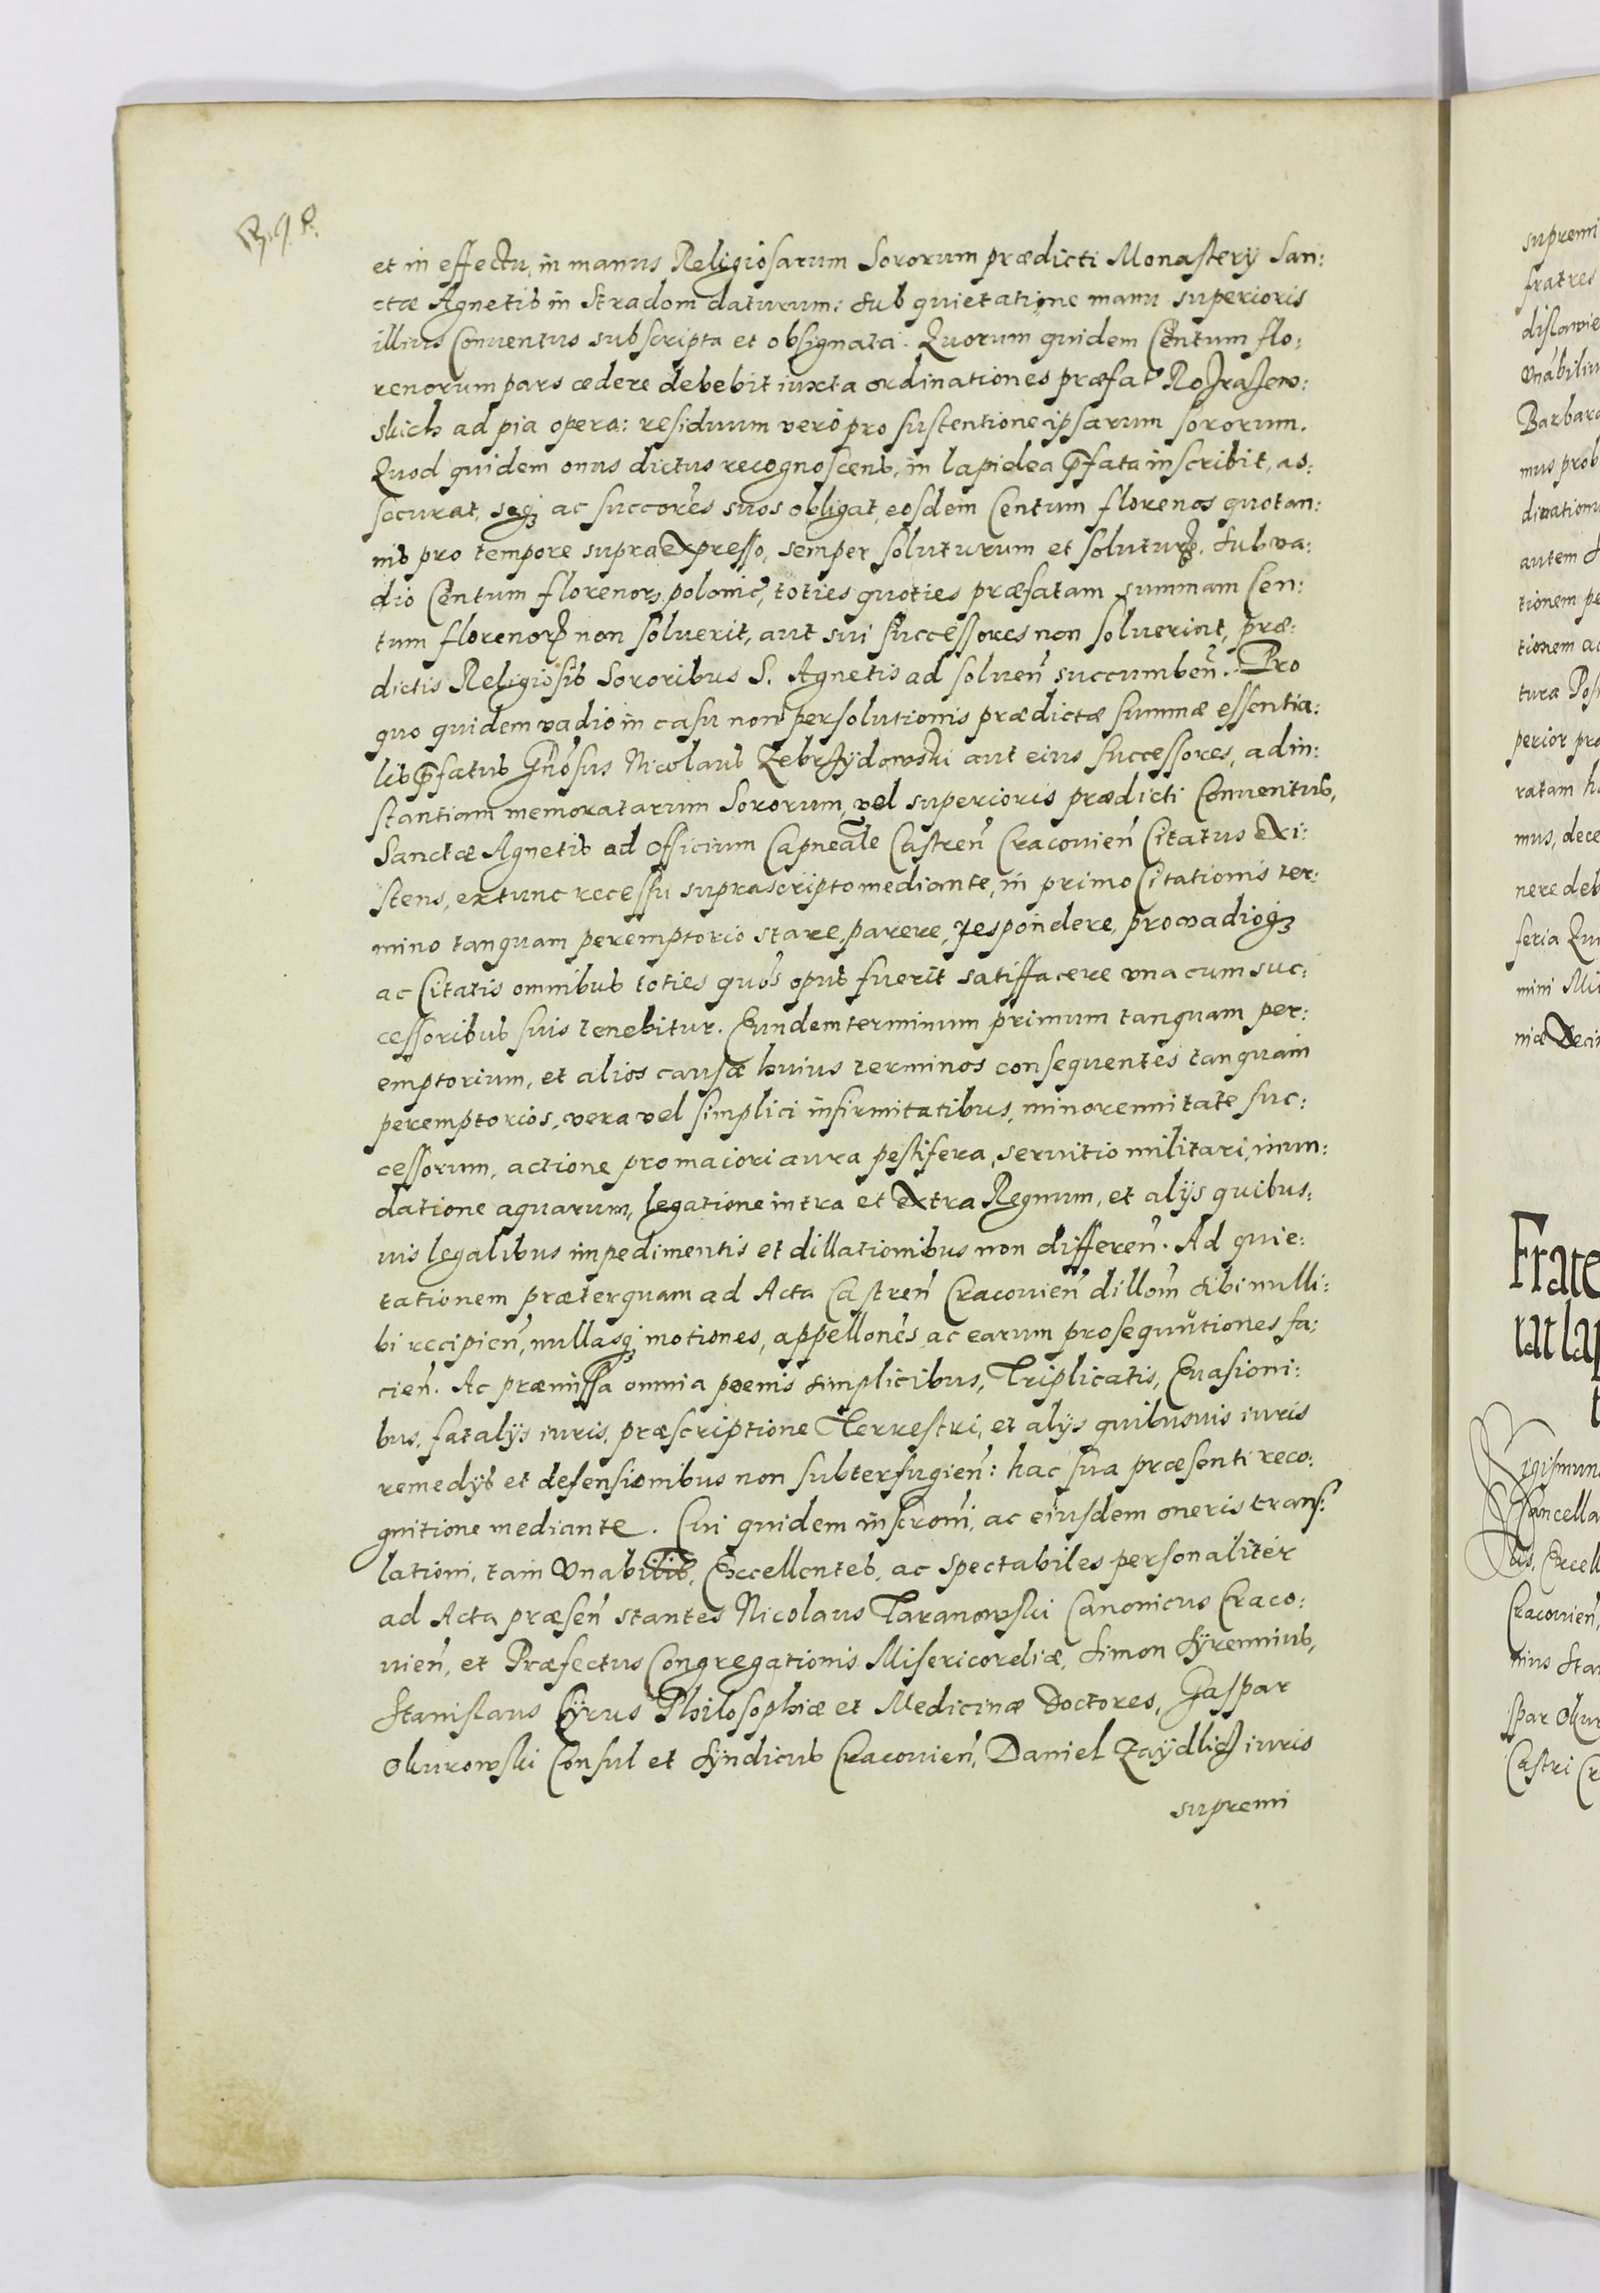 et in effectu, in manus Religiosarum Sororum prædicti Monasterÿ San:
ctæ Agnetis in Stradom daturum: Sub quietatione manu superioris
illius Conuentus subscripta et obsignata. Quorum quidem Centum flo:
renorum pars cedere debebit iuxta ordinationes præfat
skich ad pia opera: residuum verò pro sustentione ipsarum sororum.
Quod quidem onus dictus recognoscens, in lapidea p̃fata inscribit, as:
securat, seq₃ ac succorẽs suos obligat, eosdem Centum florenos quotan:
nis pro tempore supraexpresso, semper soluturum et soluturꝝ. Sub va:
dio Centum florenorꝝ polonic̃, toties quoties præfatam summam Cen:
tum florenorꝝ non soluerit, aut sui successores non soluerint, præ:
dictis Religiosis Sororibus S. Agnetis ad soluen̄ succumben̄. Pro
quo quidem vadio in casu non persolutionis prædictæ summæ essentia:
lis p̃fatus Gn̄osus Nicolaus Zebrzÿdowski aut eius successores, ad in:
stantiam memoratarum Sororum, vel superioris prædicti Conuentus,
Sanctæ Agnetis ad Officium Capneale Castren̄ Cracouien̄ Citatus exi:
stens, extunc recessu suprascripto mediante, in primo Citationis ter:
mino tanquam peremptorio stare, parere, respondere, pro vadioq₃
ac Citatis omnibus toties quos̃ opus fuerit satisfacere vna cum suc:
cessoribus suis tenebitur. Eundem terminum primum tanquam per:
emptorium, et alios causæ huius terminos consequentes tanquam
peremptorios, vera vel simplici infirmitatibus, minorennitate suc:
cessorum, actione pro maiori aura pestifera, seruitio militari, inun:
datione aquarum, legatione intra et extra Regnum, et alijs quibus:
uis legalibus impedimentis et dillationibus non differen̄. Ad quie:
tationem præterquam ad Acta Castren̄ Cracouien̄ dillom̄ sibi nulli:
bi recipien̄, nullasq₃ motiones, appellonẽs ac earum prosequũtiones fa:
cien̄. Ac præmissa omnia poenis simplicibus, Triplicatis, Euasioni:
bus, fatalijs iuris, præscriptione Terrestri, et alijs quibusuis iuris
remedÿs et defensionibus non subterfugien̄: hac sua præsenti reco:
gnitione mediante. Cui quidem inscrõni, ac eiusdem oneris trans:
lationi, tam Vnabilis, Excellentes, ac spectabiles personaliter
ad Acta præsen̄ stantes Nicolaus Taranowski Canonicus Craco:
uien̄, et Præfectus Congregationis Misericordiæ, Simon Sÿrennius,
Stanislaus Cÿrus Philosophiæ et Medicinæ Doctores, Gaspar
Okurowski Consul et Sÿndicus Cracouien̄, Daniel Zaÿdlicz iuris
supremi
supremi
fratres
mus prob
autem
tionem
tura
perior
ratam
mus, dece
nere deb
feria
mini
Frate
rat lap
Sigismun
Cancella
Cracouien̄,
Castri